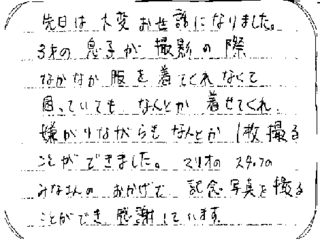 先日は大変お世話になりました。
3才の息子が撮影の際
なかなか服を着てくれなくて
困っていても なんとか 着せてくれ
嫌がりながらもなんとか1枚撮る
ことができました。スタリオのスタッフの
みなさんの おかげで 記念写真を撮る
ことができ 感謝しています。